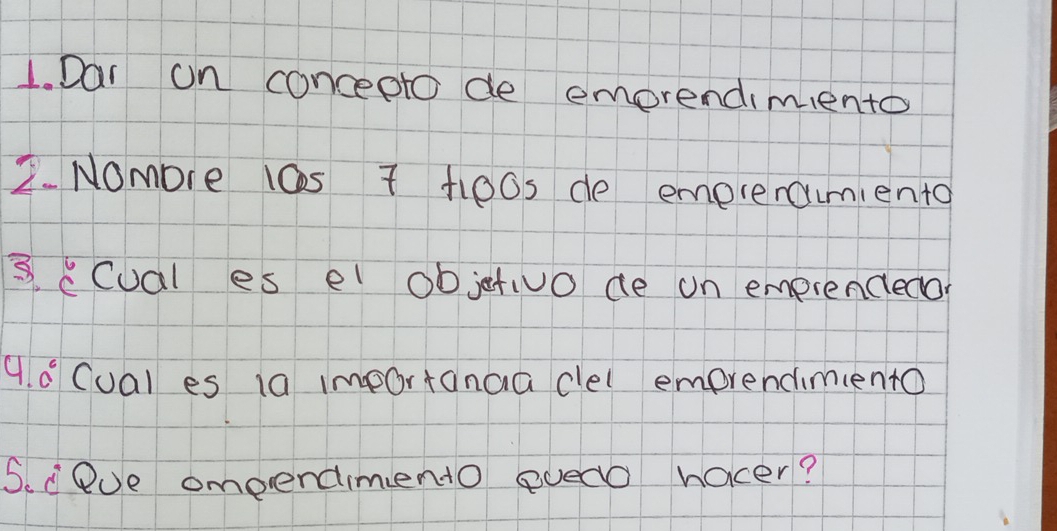 1. Dar un concepto de emprendimiento
2- Nombre los 7 tipos de emprendimiento
3. ¿Cual es el objetivo de un emprendedor
4. ¿Cual es la importancia del emprendimiento
5. ¿Que emprendimiento puedo hacer?